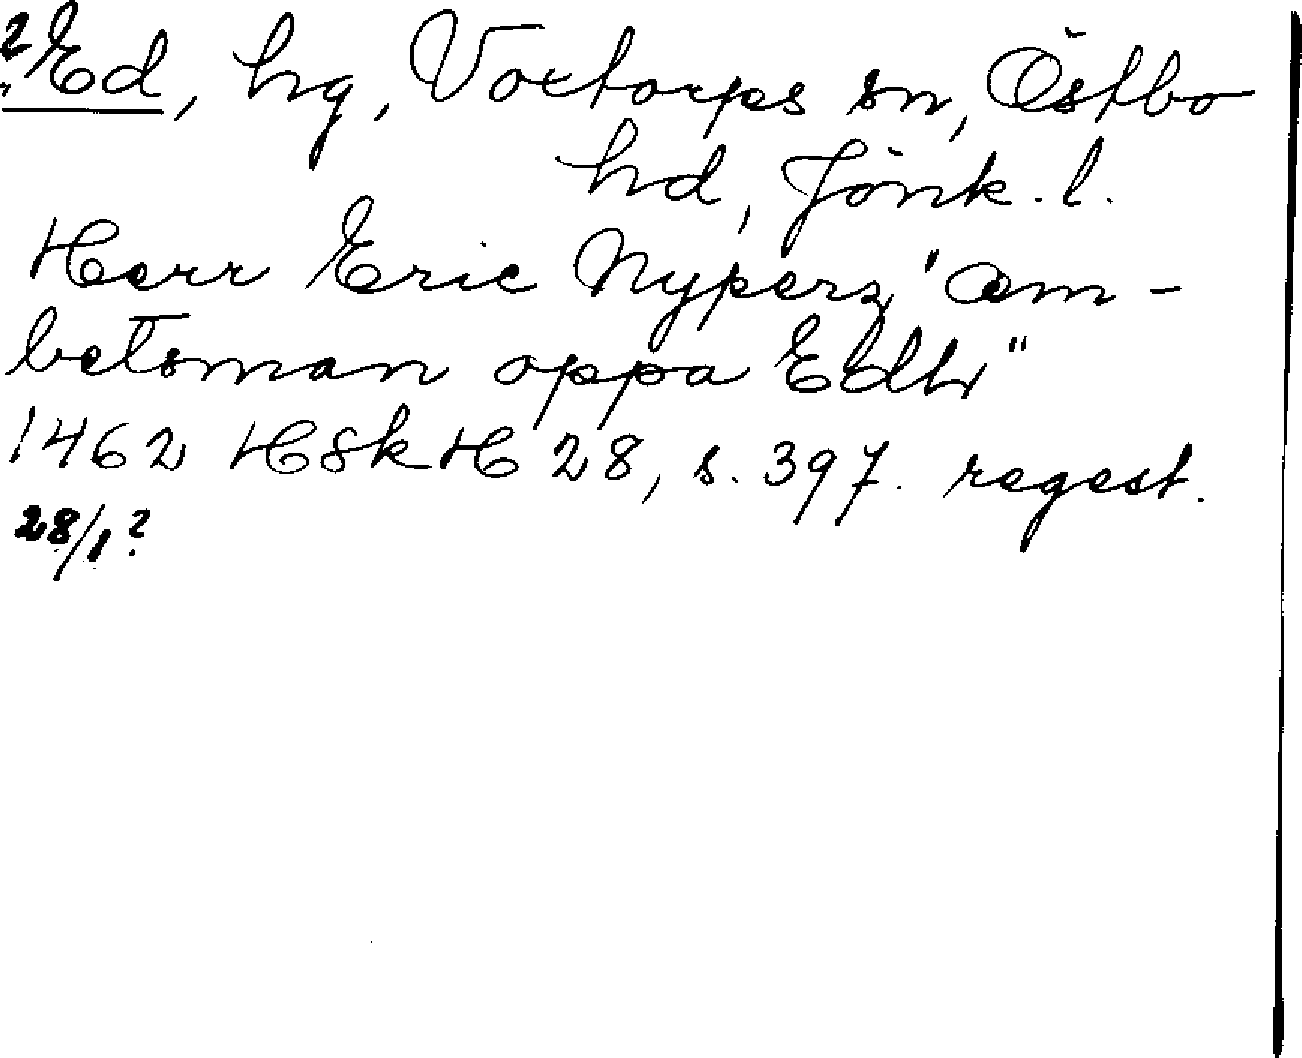 ? Ed, hg, Voxtorps sn, Östbo
hd, Jönk. l.
Herr Eric Nyperz "æm-
betsman oppa Edh"
1462 HSkH 28, s. 397. regest.
28/1?